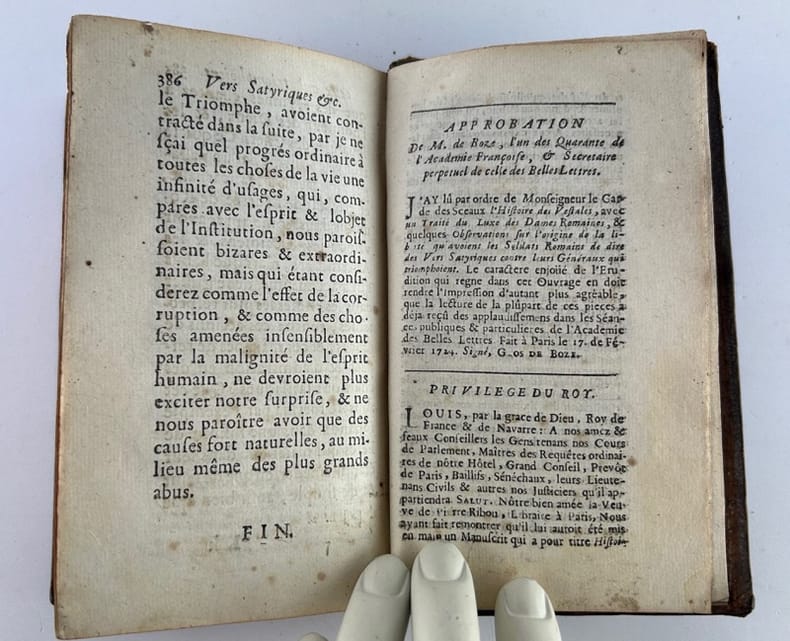 386 Vers Satyriques &c.
le Triomphe, avoient con-
tracté dans la suite, par je ne
sçai quel progrés ordinaire à
toutes les choses de la vie une
infinité d'usages, qui, com-
parés avec l'esprit & lobjet
de l'Institution, nous parois-
soient bizares & extraordi-
naires, mais qui étant consi-
derez comme l'effet de la cor-
ruption, & comme des cho-
ses amenées insensiblement
par la malignité de l'esprit
humain, ne devroient plus
exciter notre surprise, & ne
nous paroître avoir que des
causes fort naturelles, au mi-
lieu même des plus grands
abus.
FIN.
APPROBATION
De M. de Boze, l'un des Quarante de
l'Academie Françoise, & Secretaire
perpetuel de celle des Belles Lettres.
J'AY lû par ordre de Monseigneur le Gar-
de des Sceaux l'Histoire des Vestales, avec
un Traité du Luxe des Dames Romaines, &
quelques Observations sur l'origine de la li-
berté qu'avoient les Soldats Romains de dire
des Vers Satyriques contre leurs Généraux qui
triomphoient. Le caractere enjoüé de l'Eru-
dition qui regne dans cet Ouvrage en doit
rendre l'Impression d'autant plus agréable,
que la lecture de la plûpart de ces pieces a
déja reçû des applaudissemens dans les Séan-
ces publiques & particulieres de l'Academie
des Belles Lettres Fait à Paris le 17. de Fé-
vrier 1724. Signé, GROS DE BOZE.
PRIVILEGE DU ROY.
LOUIS, par la grace de Dieu, Roy de
France & de Navarre: A nos amez &
feaux Conseillers les Gens tenans nos Cours
de Parlement, Maîtres des Requêtes ordinai-
res de nôtre Hôtel, Grand Conseil, Prevôt
de Paris, Baillifs, Sénéchaux, leurs Lieute-
nans Civils & autres nos Justiciers qu'il ap-
partiendra SALUT. Nôtre bien amée la Veu-
ve de Pierre Ribou, Libraire à Paris, Nous
ayant fait remontrer qu'il lui auroit été mis
en main un Manuscrit qui a pour titre Histoir